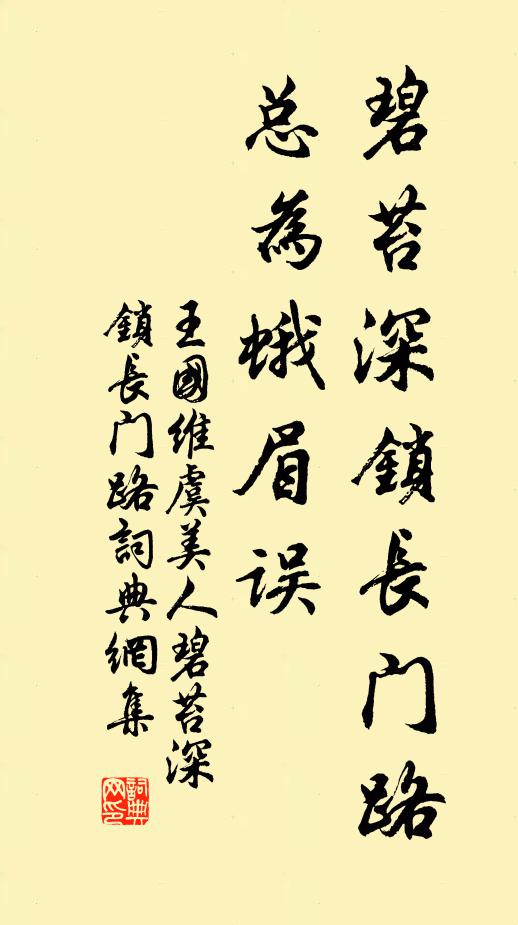 碧苔深鎖長门路
总為蛾眉误
王國維虞美人碧苔深
鎖長门路詞典網集
詞典
网印